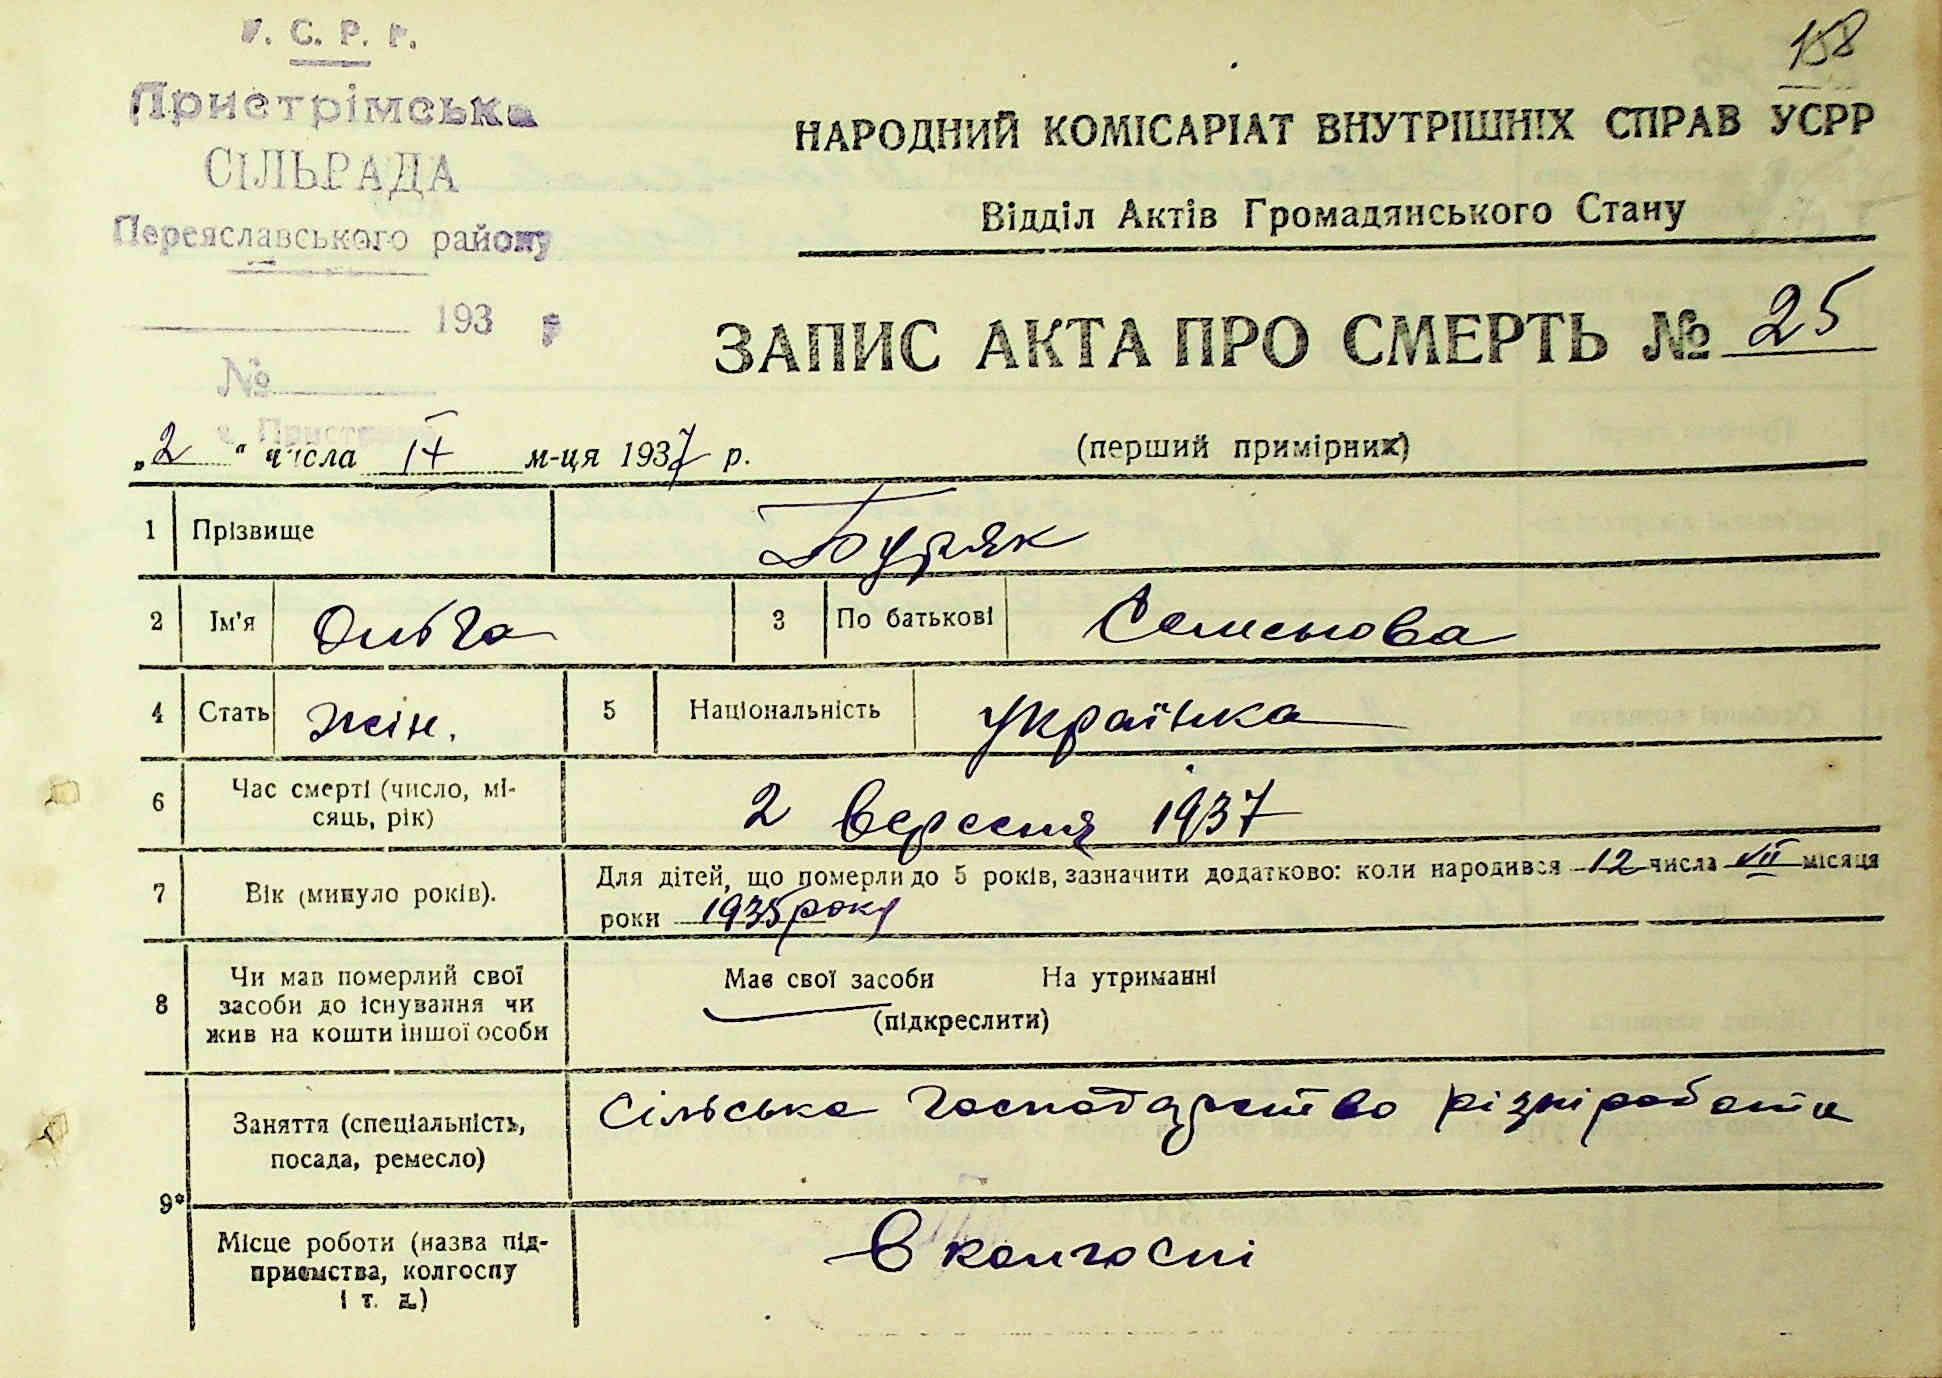 У. С. Р. Р.
158
Пристрімська
СІЛЬРАДА
Переяславського району
193 р
№
с. Пристроми
НАРОДНИЙ КОМІСАРІАТ ВНУТРІШНІХ СПРАВ УСРР
Відділ Актів Громадянського Стану
ЗАПИС АКТА ПРО СМЕРТЬ № 25
„2" числа IX м-ця 1937 р. (перший примірник)
1 Прізвище Буряк
2 Ім'я Ольга 3 По батькові Семенова
4 Стать жін. 5 Національність українка
6 Час смерті (число, мі-
сяць, рік) 2 вересня 1937
7 Вік (минуло років). Для дітей, що померли до 5 років, зазначити додатково: коли народився 12 числа VII місяця
роки 1935 року
8 Чи мав померлий свої
засоби до існування чи
жив на кошти іншої особи
Мав свої засоби На утриманні
(підкреслити)
9* Заняття (спеціальність,
посада, ремесло) Сільське господарство різні роботи
Місце роботи (назва під-
приємства, колгоспу
і т. д.) В колгоспі